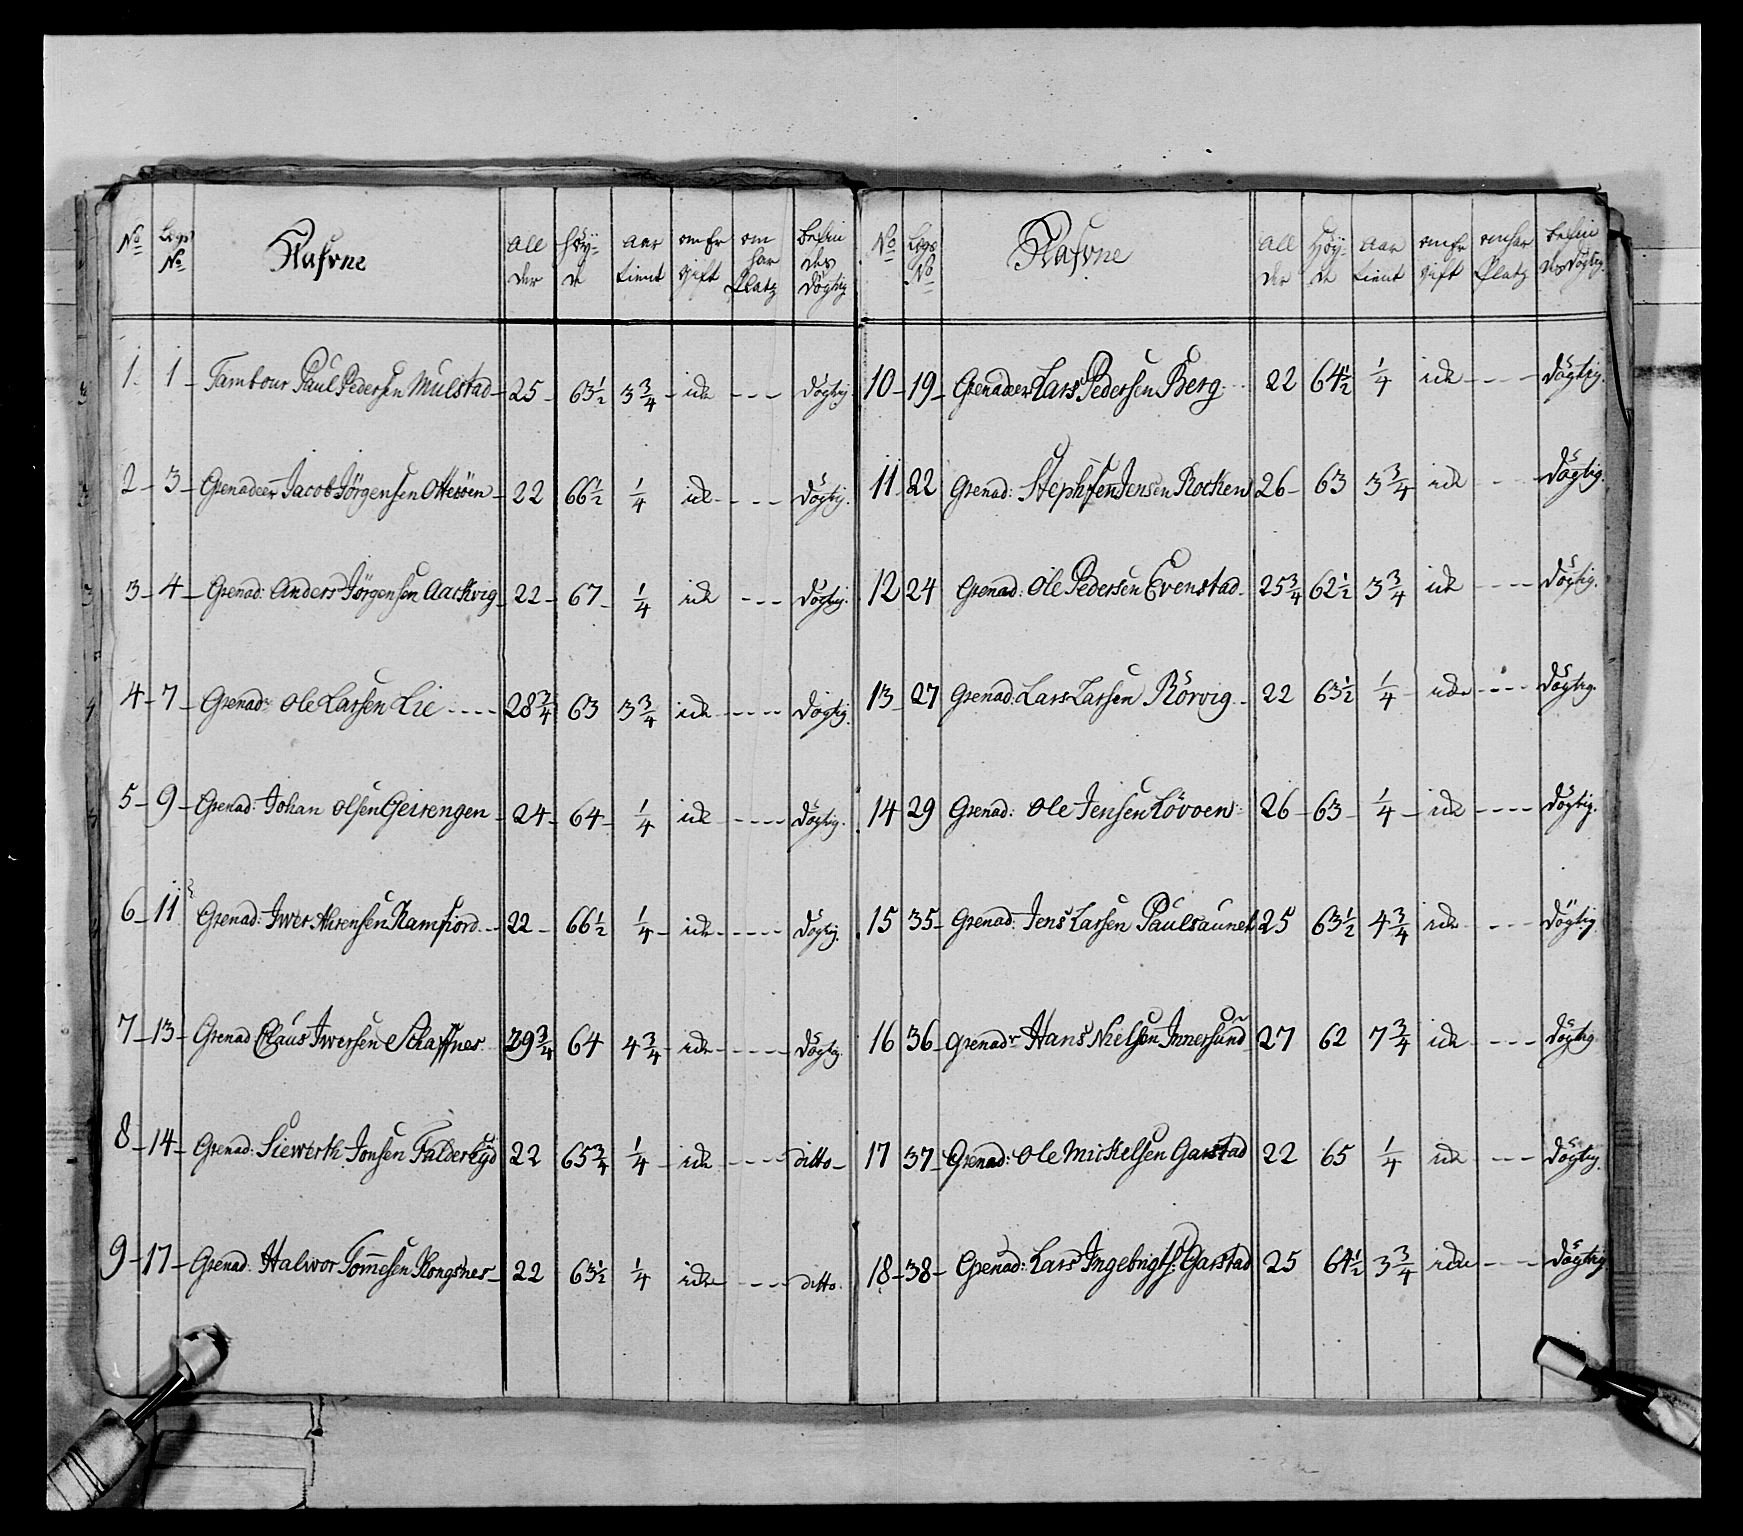 No Lægs No Nafvne All der Høy- de aar tient om Er gift om har Platz befin des døgtig
1. 1 - Tambour Paul Pedersen Mulstad - 25 - 63½ 3¾ - icke - - - døgtig.
2 - 3 - Grenadeer Jacob Jørgensen Ottersen - 22 66½ ¼ icke - - - døgtig.
3 - 4 - Grenad: Anders Jørgensen Aackvig - 22 - 67 - ¼ icke - - - døgtig.
4 - 7 - Grenad: Ole Larsen Lie - - - - 28¾ 63 3¾ icke - - - - døgtig.
5 - 9 - Grenad: Johan Olsen Geirengen - 24 - 64 - ¼ icke - - - - døgtig.
6 - 11 Grenad: Iwer Ahrensen Ramfiord - - 22 - 66½ ¼ - icke - - - - døgtig.
7 - 13 - Grenad Claus Iwersen Schaffnes - 29¾ 64 4¾ - icke - - - - døgtig.
8 - 14 - Grenad: Siewerth Jonsen 22 65¾ ¼ - icke - - - - ditto -
9 - 17 - Grenad: Halwor Tommesen Kongsnes - 22 63½ ¼ icke - - - ditto.
No Lægs No Nafvne All der Høy- de Aar tient om Er gift om har Platz befin des døgtig.
10 - 19 - Grenadeer Lars Pedersen Berg - - 22 64½ ¼ icke - - - - døgtig.
11 22 Grenad: Stephfen Jensen Rocken 26 - 63 3¾ icke - - - døgtig.
12 24 Grenad: Ole Pedersen Evenstad - 25¾ 62½ 3¾ icke - - - - døgtig.
13 - 27 Grenad: Lars Larsen Rörvig - - 22 63½ ¼ - icke - - - - døgtig.
14 29 Grenad: Ole Jensen Lövoen - 26 - 63 - ¼ - icke - - - - døgtig.
15 35 - Grenad: Jens Larsen Paulsaunet 25 63½ 4¾ icke - - - døgtig
16 36 - Grenadr Hans Nielsen Innersund - 27 62 7¾ icke - - - døgtig
17 37 - Grenad: Ole Mickelsen Garstad 22 65 ¼ icke - - - døgtig.
18 - 38 - Grenad: Lars Ingebrigts: Garstad 25 64½ 3¾ icke - - - døgtig